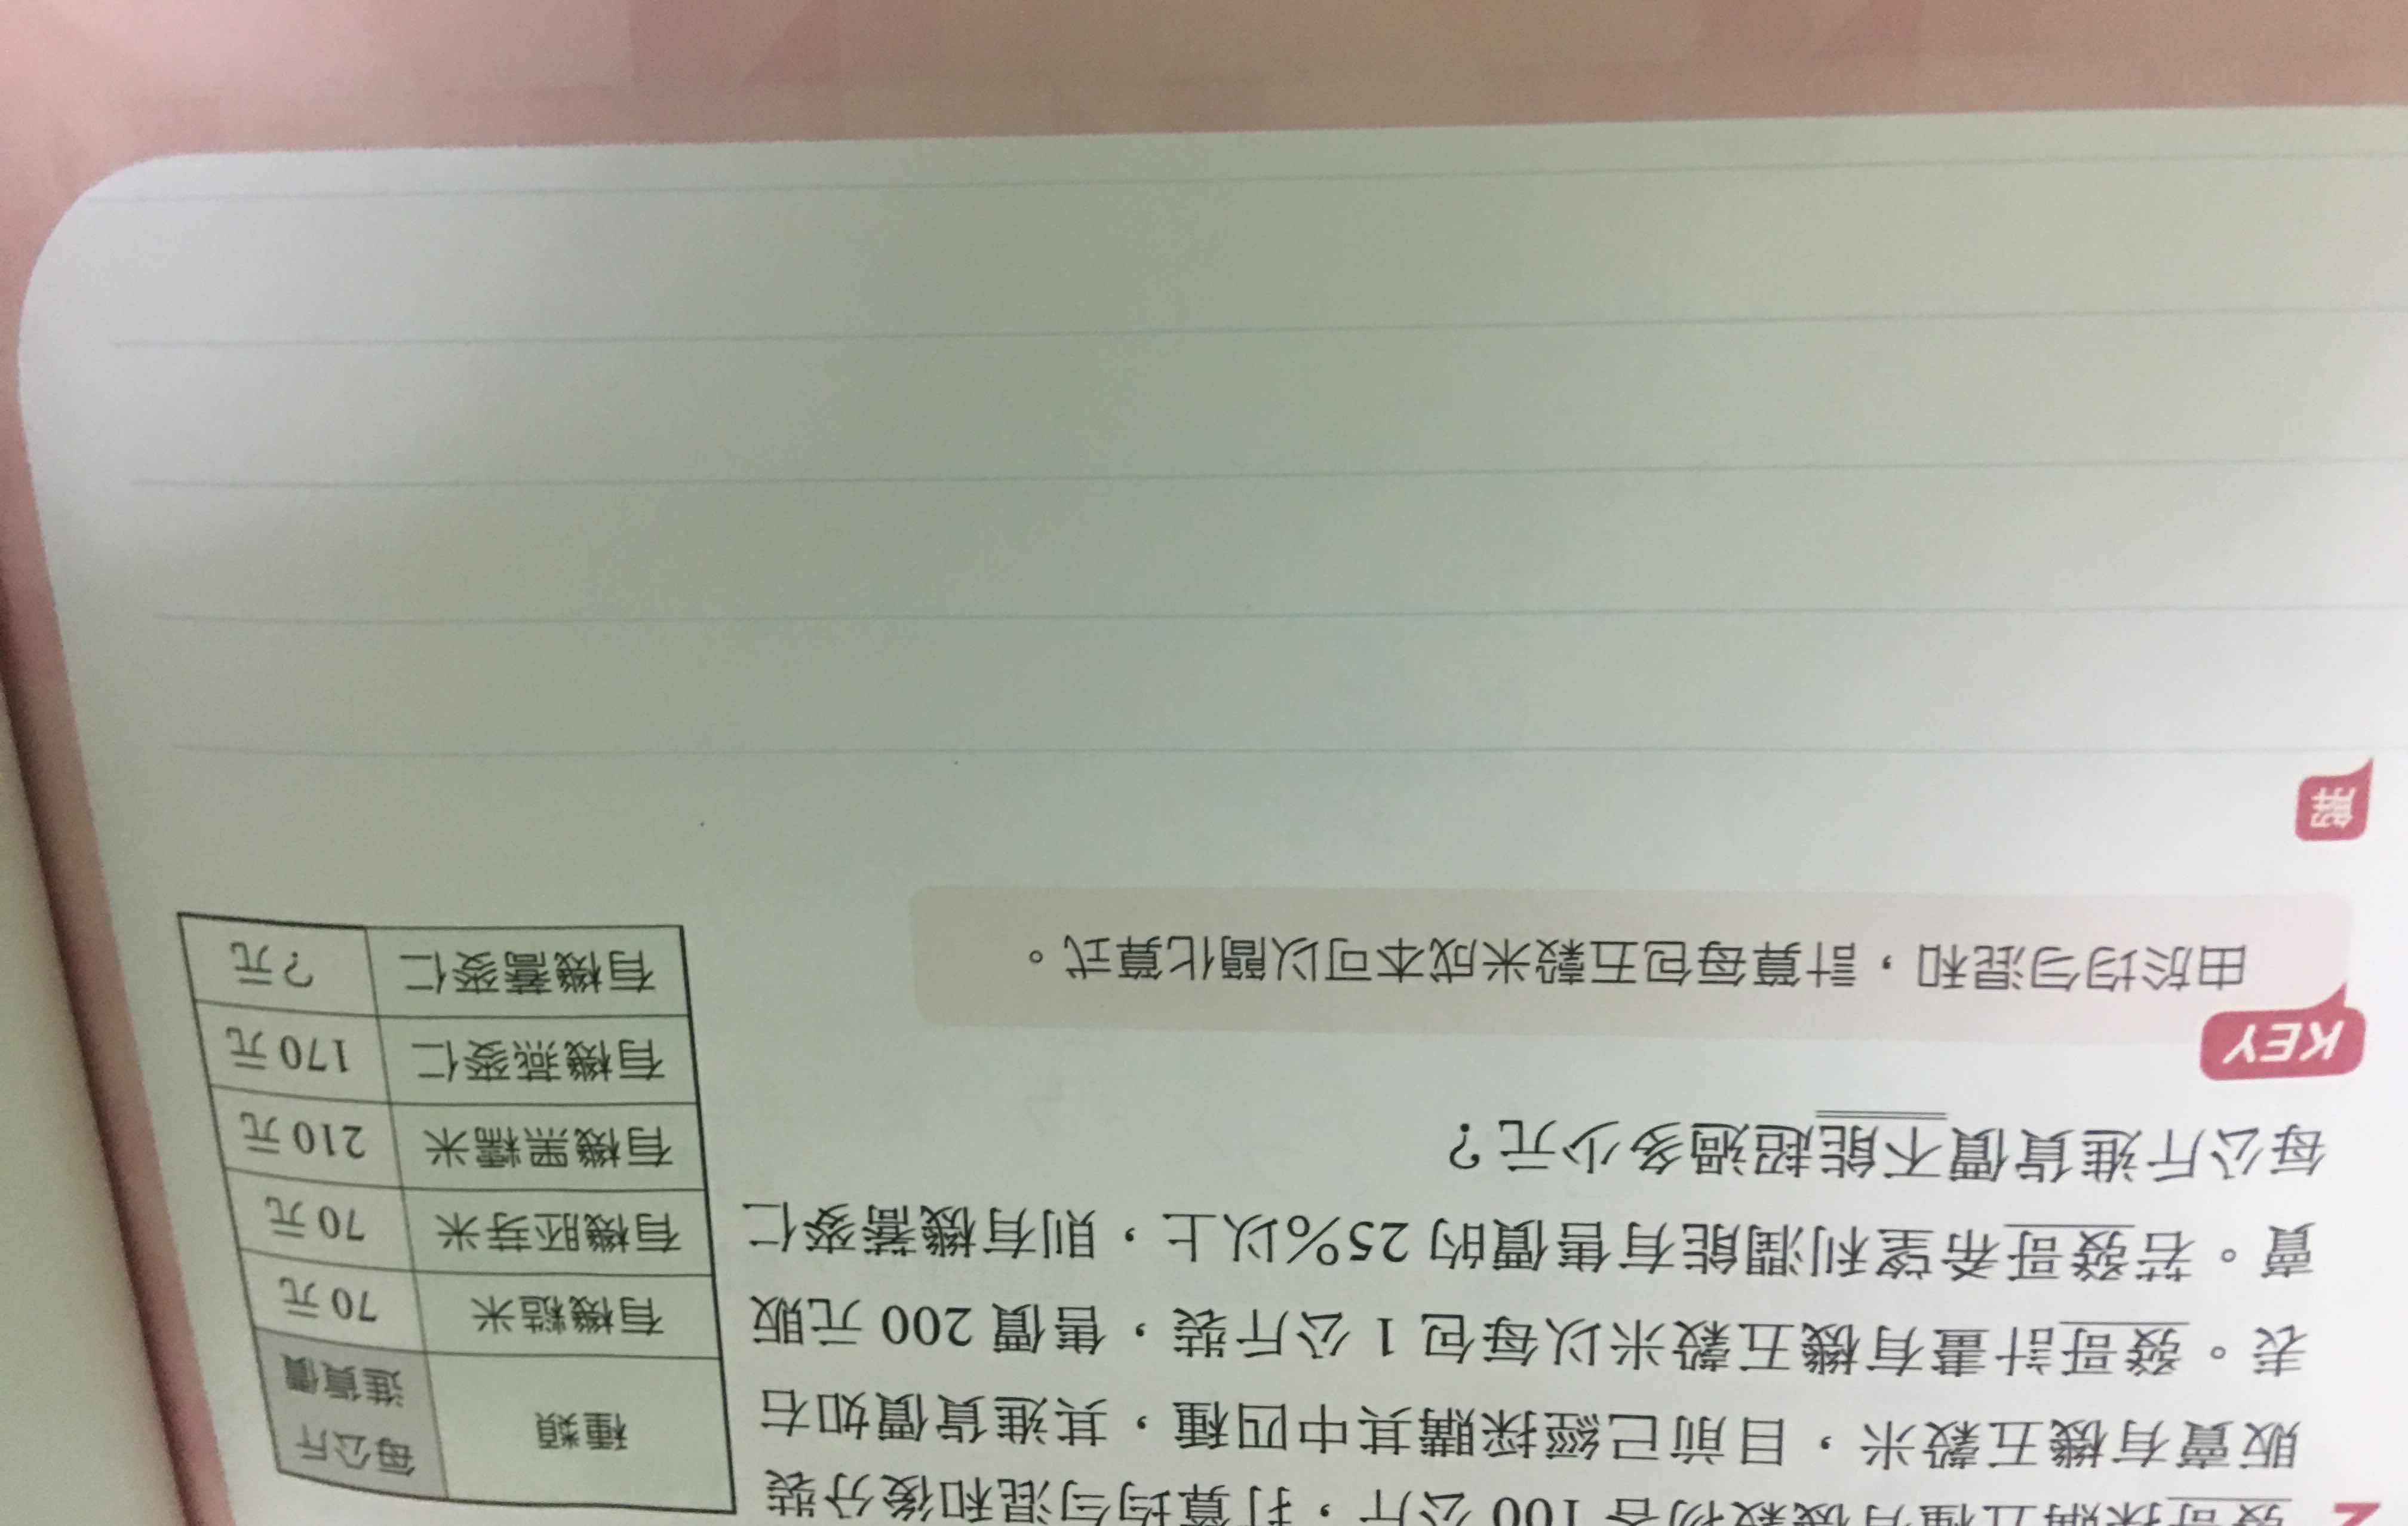 2 發哥採購五種有機穀物各 100 公斤，打算均勻混和後分裝
販賣有機五穀米，目前已經採購其中四種，其進貨價如右
表。發哥計畫有機五穀米以每包 1 公斤裝，售價 200 元販
賣。若發哥希望利潤能有售價的 25%以上，則有機蕎麥仁
每公斤進貨價不能超過多少元？
種類 每公斤進貨價
有機糙米 70 元
有機胚芽米 70 元
有機黑糯米 210 元
有機燕麥仁 170 元
有機蕎麥仁 ？元
KEY
由於均勻混和，計算每包五穀米成本可以簡化算式。
解